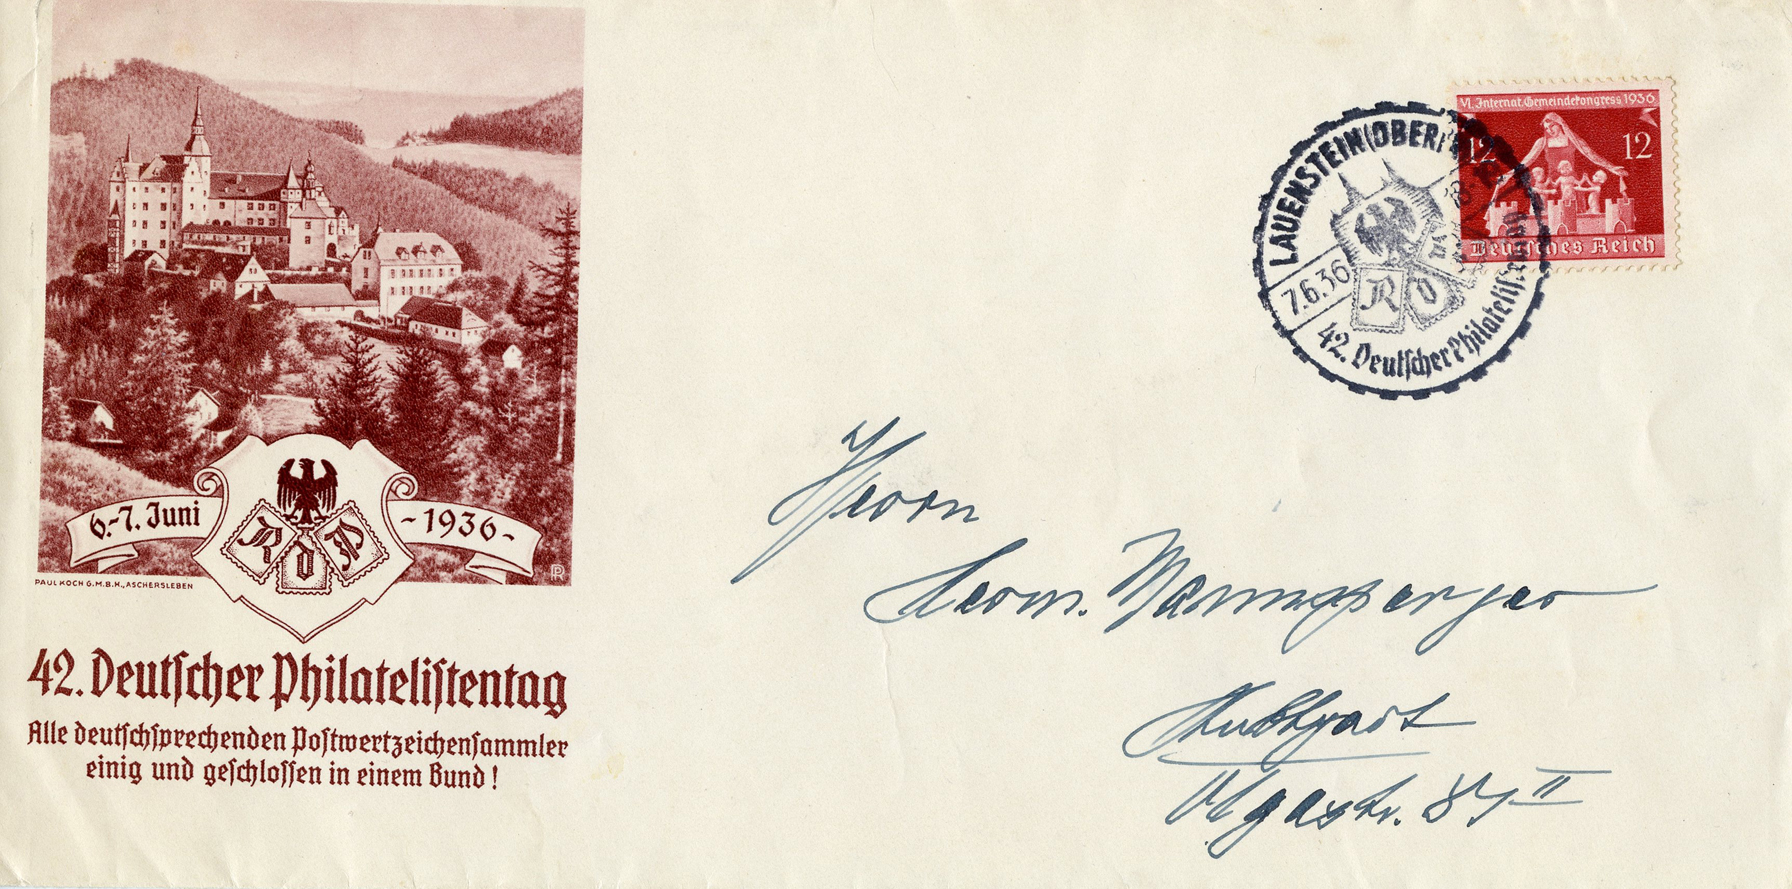 6.-7. Juni
-1936-
R d P
PAUL KOCH G.M.B.H., ASCHERSLEBEN
PR
42. Deutscher Philatelistentag
Alle deutschsprechenden Postwertzeichensammler
einig und geschlossen in einem Bund!
VI. Internat. Gemeindekongress 1936
12 12
Deutsches Reich
LAUENSTEIN (OBERFR
7.6.36
R d
42. Deutscher Philatelisten
Herrn
Herm.
Stuttgart
Olgastr. 87 II